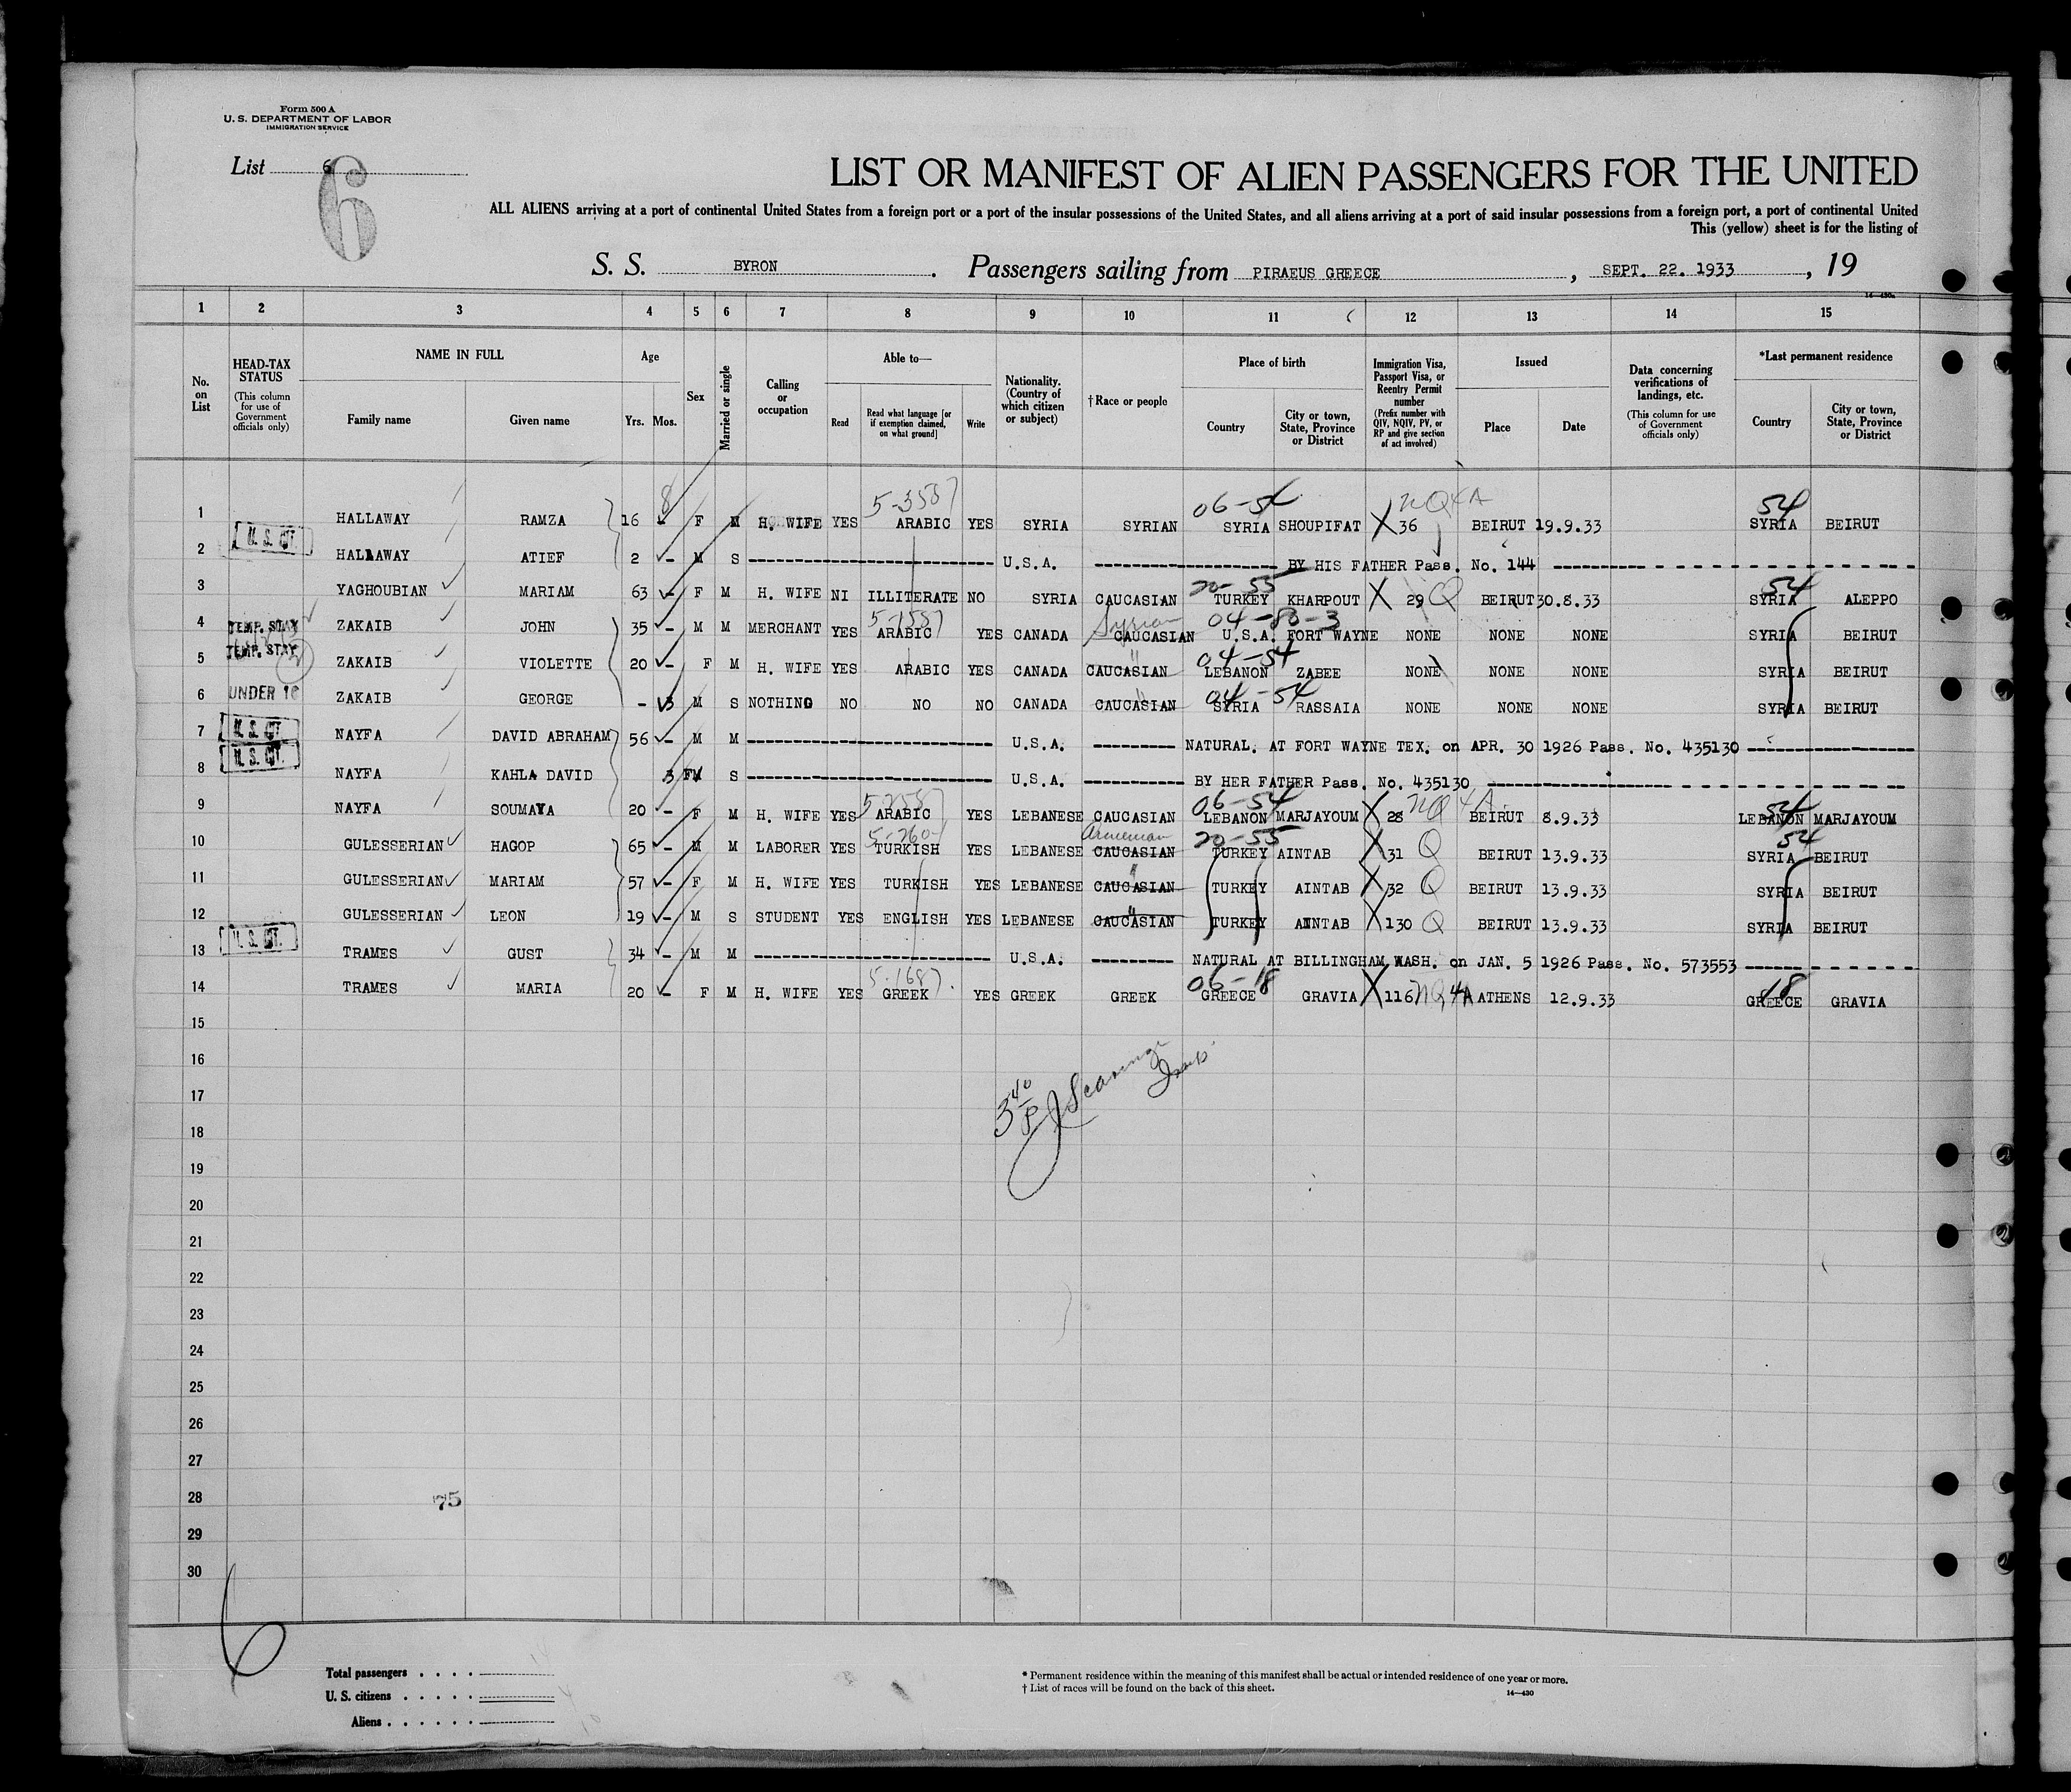 Form 500 A
U. S. DEPARTMENT OF LABOR
IMMIGRATION SERVICE
List 6
6
LIST OR MANIFEST OF ALIEN PASSENGERS FOR THE UNITED
ALL ALIENS arriving at a port of continental United States from a foreign port or a port of the insular possessions of the United States, and all aliens arriving at a port of said insular possessions from a foreign port, a port of continental United
This (yellow) sheet is for the listing of
S. S. BYRON. Passengers sailing from PIRAEUS GREECE, SEPT. 22. 1933, 19
1 2 3 4 5 6 7 8 9 10 11 12 13 14 15
No. on List
HEAD-TAX STATUS (This column for use of Government officials only)
NAME IN FULL Family name Given name
Age Yrs. Mos.
Sex
Married or single
Calling or occupation
Able to— Read Read what language [or if exemption claimed, on what ground] Write
Nationality. (Country of which citizen or subject)
†Race or people
Place of birth Country City or town, State, Province or District
Immigration Visa, Passport Visa, or Reentry Permit number (Prefix number with QIV, NQIV, PV, or RP and give section of act involved)
Issued Place Date
Data concerning verifications of landings, etc. (This column for use of Government officials only)
*Last permanent residence Country City or town, State, Province or District
8 5-3587 06-54 NQ4A 54
1 HALLAWAY RAMZA 16 - F M H. WIFE YES ARABIC YES SYRIA SYRIAN SYRIA SHOUPIFAT X 36 BEIRUT 19.9.33 SYRIA BEIRUT
2 U. S. CIT. HALLAWAY ATIEF 2 - M S U.S.A. BY HIS FATHER Pass. No. 144
20-55 54
3 YAGHOUBIAN MARIAM 63 - F M H. WIFE NI ILLITERATE NO SYRIA CAUCASIAN TURKEY KHARPOUT X 29 Q BEIRUT 30.8.33 SYRIA ALEPPO
5-1587 Syrian 04-83-3
4 TEMP. STAY ZAKAIB JOHN 35 - M M MERCHANT YES ARABIC YES CANADA CAUCASIAN U.S.A. FORT WAYNE NONE NONE NONE SYRIA BEIRUT
" 04-54
5 TEMP. STAY ZAKAIB VIOLETTE 20 - F M H. WIFE YES ARABIC YES CANADA CAUCASIAN LEBANON ZABEE NONE NONE NONE SYRIA BEIRUT
" 04-54
6 UNDER 16 ZAKAIB GEORGE - 3 M S NOTHING NO NO NO CANADA CAUCASIAN SYRIA RASSAIA NONE NONE NONE SYRIA BEIRUT
7 U. S. CIT. NAYFA DAVID ABRAHAM 56 - M M U.S.A. NATURAL. AT FORT WAYNE TEX. on APR. 30 1926 Pass. No. 435130
8 U. S. CIT. NAYFA KAHLA DAVID 3 F S U.S.A. BY HER FATHER Pass. No. 435130
5-2587 06-54 NQ4A 54
9 NAYFA SOUMAYA 20 - F M H. WIFE YES ARABIC YES LEBANESE CAUCASIAN LEBANON MARJAYOUM X 28 BEIRUT 8.9.33 LEBANON MARJAYOUM
5-2604 Armenian 20-55 54
10 GULESSERIAN HAGOP 65 - M M LABORER YES TURKISH YES LEBANESE CAUCASIAN TURKEY AINTAB X 31 Q BEIRUT 13.9.33 SYRIA BEIRUT
11 GULESSERIAN MARIAM 57 - F M H. WIFE YES TURKISH YES LEBANESE CAUCASIAN TURKEY AINTAB X 32 Q BEIRUT 13.9.33 SYRIA BEIRUT
12 GULESSERIAN LEON 19 - M S STUDENT YES ENGLISH YES LEBANESE CAUCASIAN TURKEY AINTAB X 130 Q BEIRUT 13.9.33 SYRIA BEIRUT
13 U. S. CIT. TRAMES GUST 34 - M M U.S.A. NATURAL AT BILLINGHAM WASH. on JAN. 5 1926 Pass. No. 573553
5-1687 06-18 18
14 TRAMES MARIA 20 - F M H. WIFE YES GREEK YES GREEK GREEK GREECE GRAVIA X 116 NQ4A ATHENS 12.9.33 GREECE GRAVIA
15
16
17
18
19
20
21
22
23
24
25
26
27
28
75
29
30
6
Total passengers
U. S. citizens
Aliens
* Permanent residence within the meaning of this manifest shall be actual or intended residence of one year or more.
† List of races will be found on the back of this sheet.
14—430